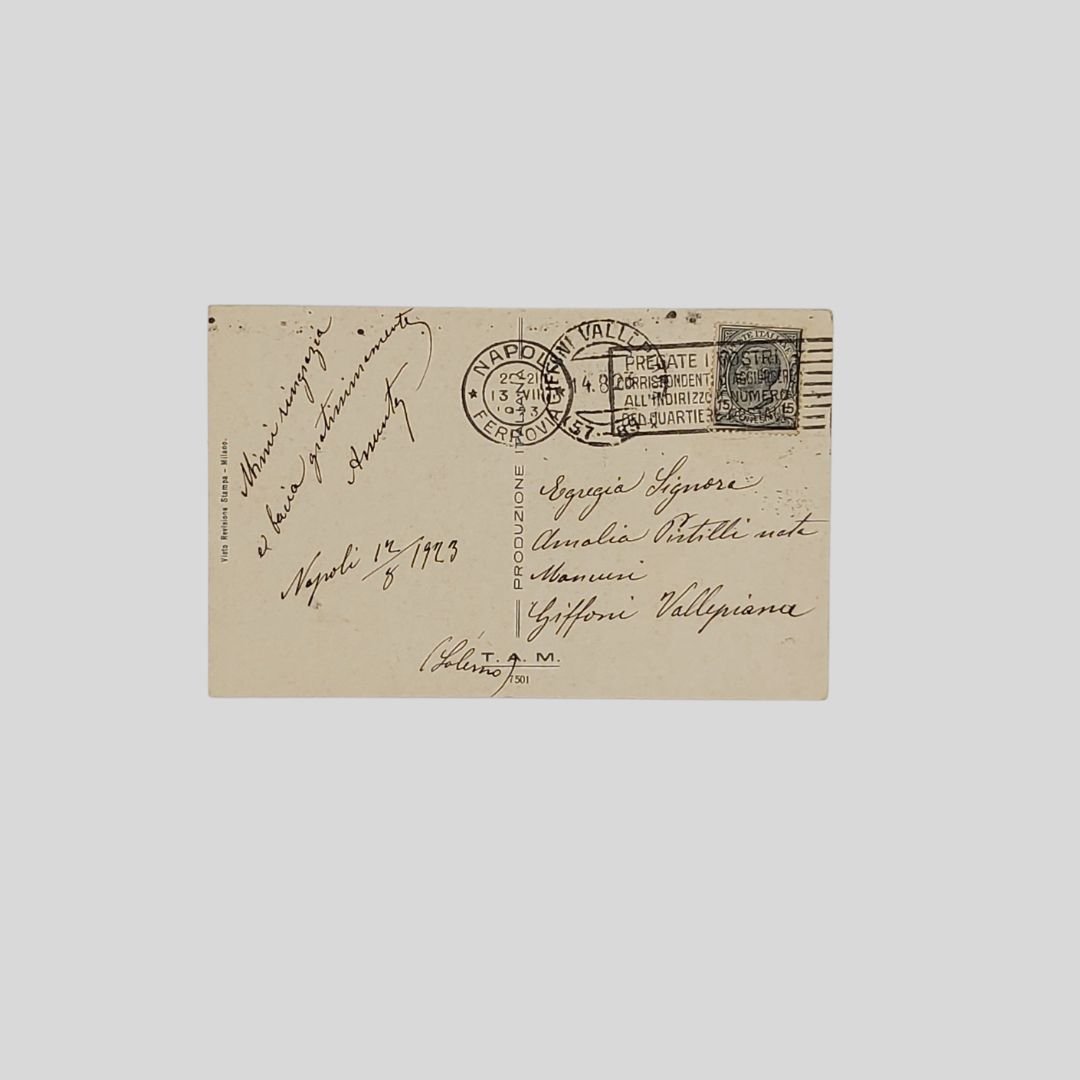 Mimì ringrazia
e bacia gratissimamente
Assunta
Napoli 12/8 1923
Visto Revisione Stampa - Milano.
PRODUZIONE ITALIANA
NAPOLI
FERROVIA
20-21
13 VIII
1923
GIFFONI VALLE PIANA
14.8.23
57-83
PREGATE I VOSTRI
CORRISPONDENTI D'AGGIUNGERE
ALL'INDIRIZZO IL NUMERO
DEL QUARTIERE POSTALE
POSTE ITALIANE
15 15
Egregia Signora
Amalia Pistilli nata
Mancusi
Giffoni Vallepiana
(Salerno)
T. A. M.
7501